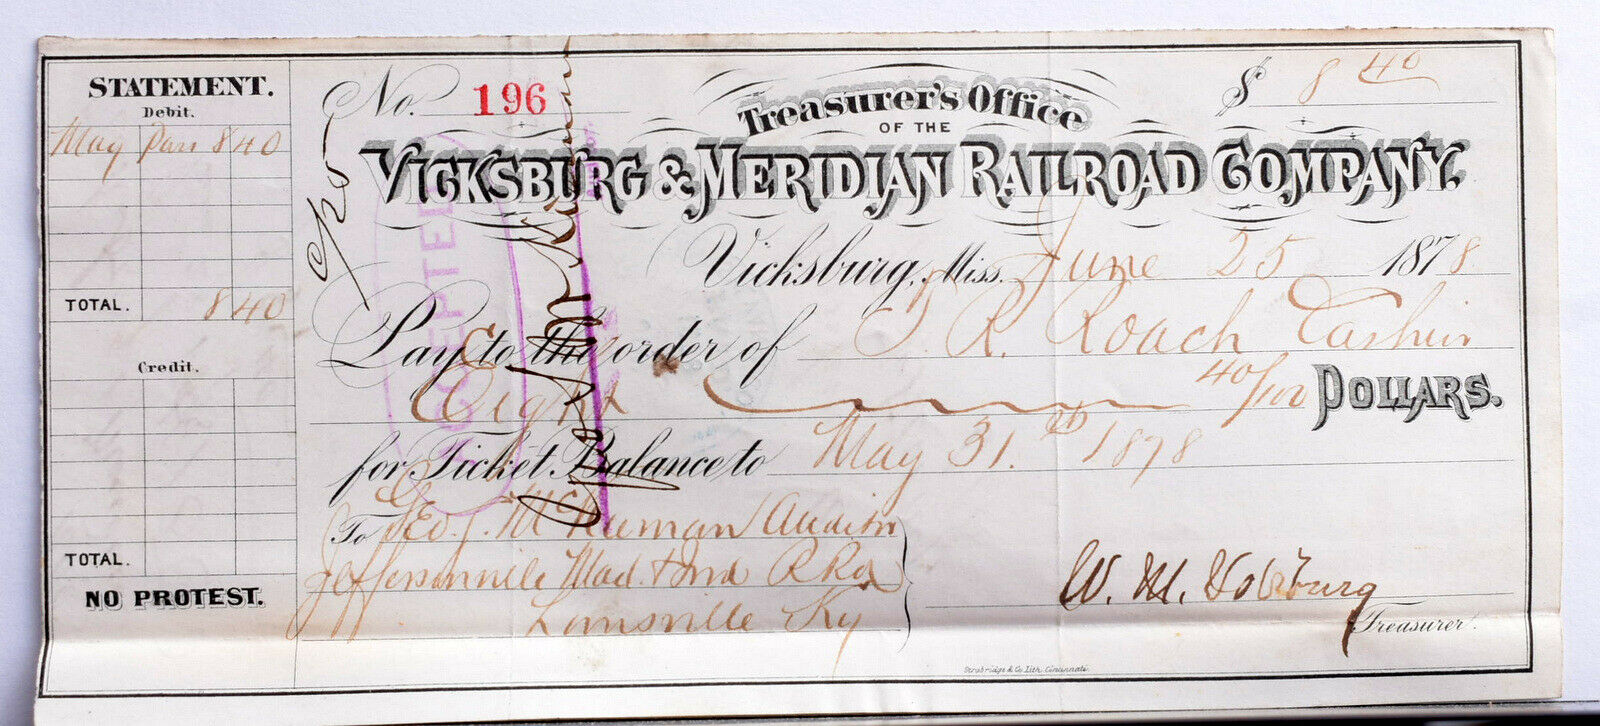 STATEMENT.
Debit.
May Pass 8 40
TOTAL. 8 40
Credit.
TOTAL.
NO PROTEST.
No. 196
$ 8 40
Treasurer's Office
OF THE
VICKSBURG & MERIDIAN RAILROAD COMPANY.
Vicksburg, Miss. June 25 1878
Pay to the order of T. R. Roach Cashier
Eight 40/100 DOLLARS.
for Ticket Balance to May 31st 1878
To Geo. J. McKiernan Auditor
Jeffersonville Mad. & Ind R Rd
Louisville Ky
W. M.
Treasurer.
Strobridge & Co. Lith. Cincinnati.
ACCEPTED